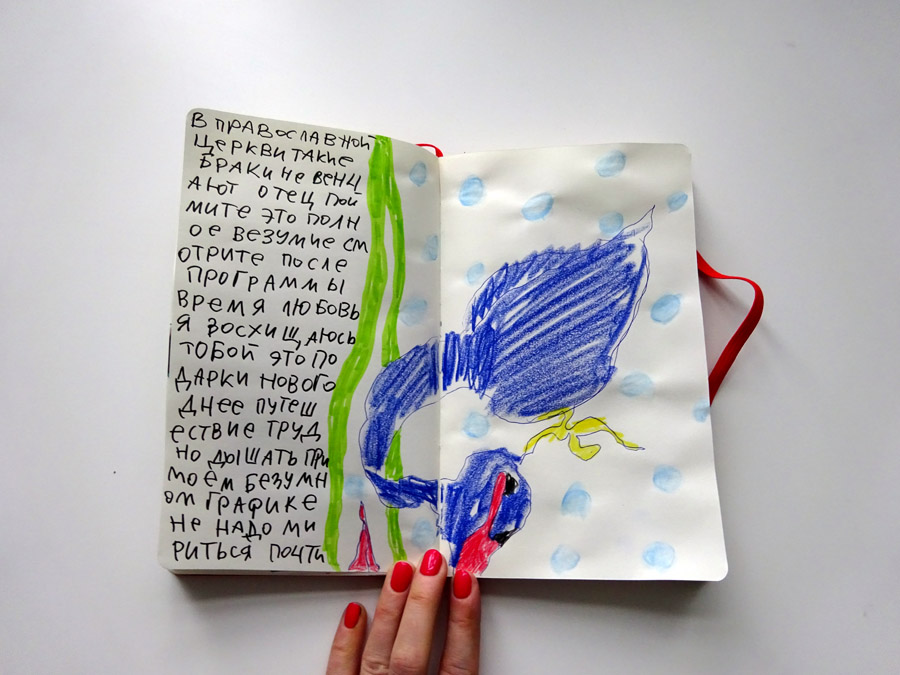 В ПРАВОСЛАВНОЙ
ЦЕРКВИ ТАКИЕ
БРАКИ НЕ ВЕНЦ
АЮТ ОТЕЦ ПОЙ
МИТЕ ЭТО ПОЛН
ОЕ БЕЗУМИЕ СМ
ОТРИТЕ ПОСЛЕ
ПРОГРАММЫ
ВРЕМЯ ЛЮБОВЬ
Я ВОСХИЩАЮСЬ
ТОБОЙ ЭТО ПО
ДАРКИ НОВОГО
ДНЕЕ ПУТЕШ
ЕСТВИЕ ТРУД
НО ДЫШАТЬ ПРИ
МОЕМ БЕЗУМН
ОМ ГРАФИКЕ
НЕ НАДО МИ
РИТЬСЯ ПОЧТИ